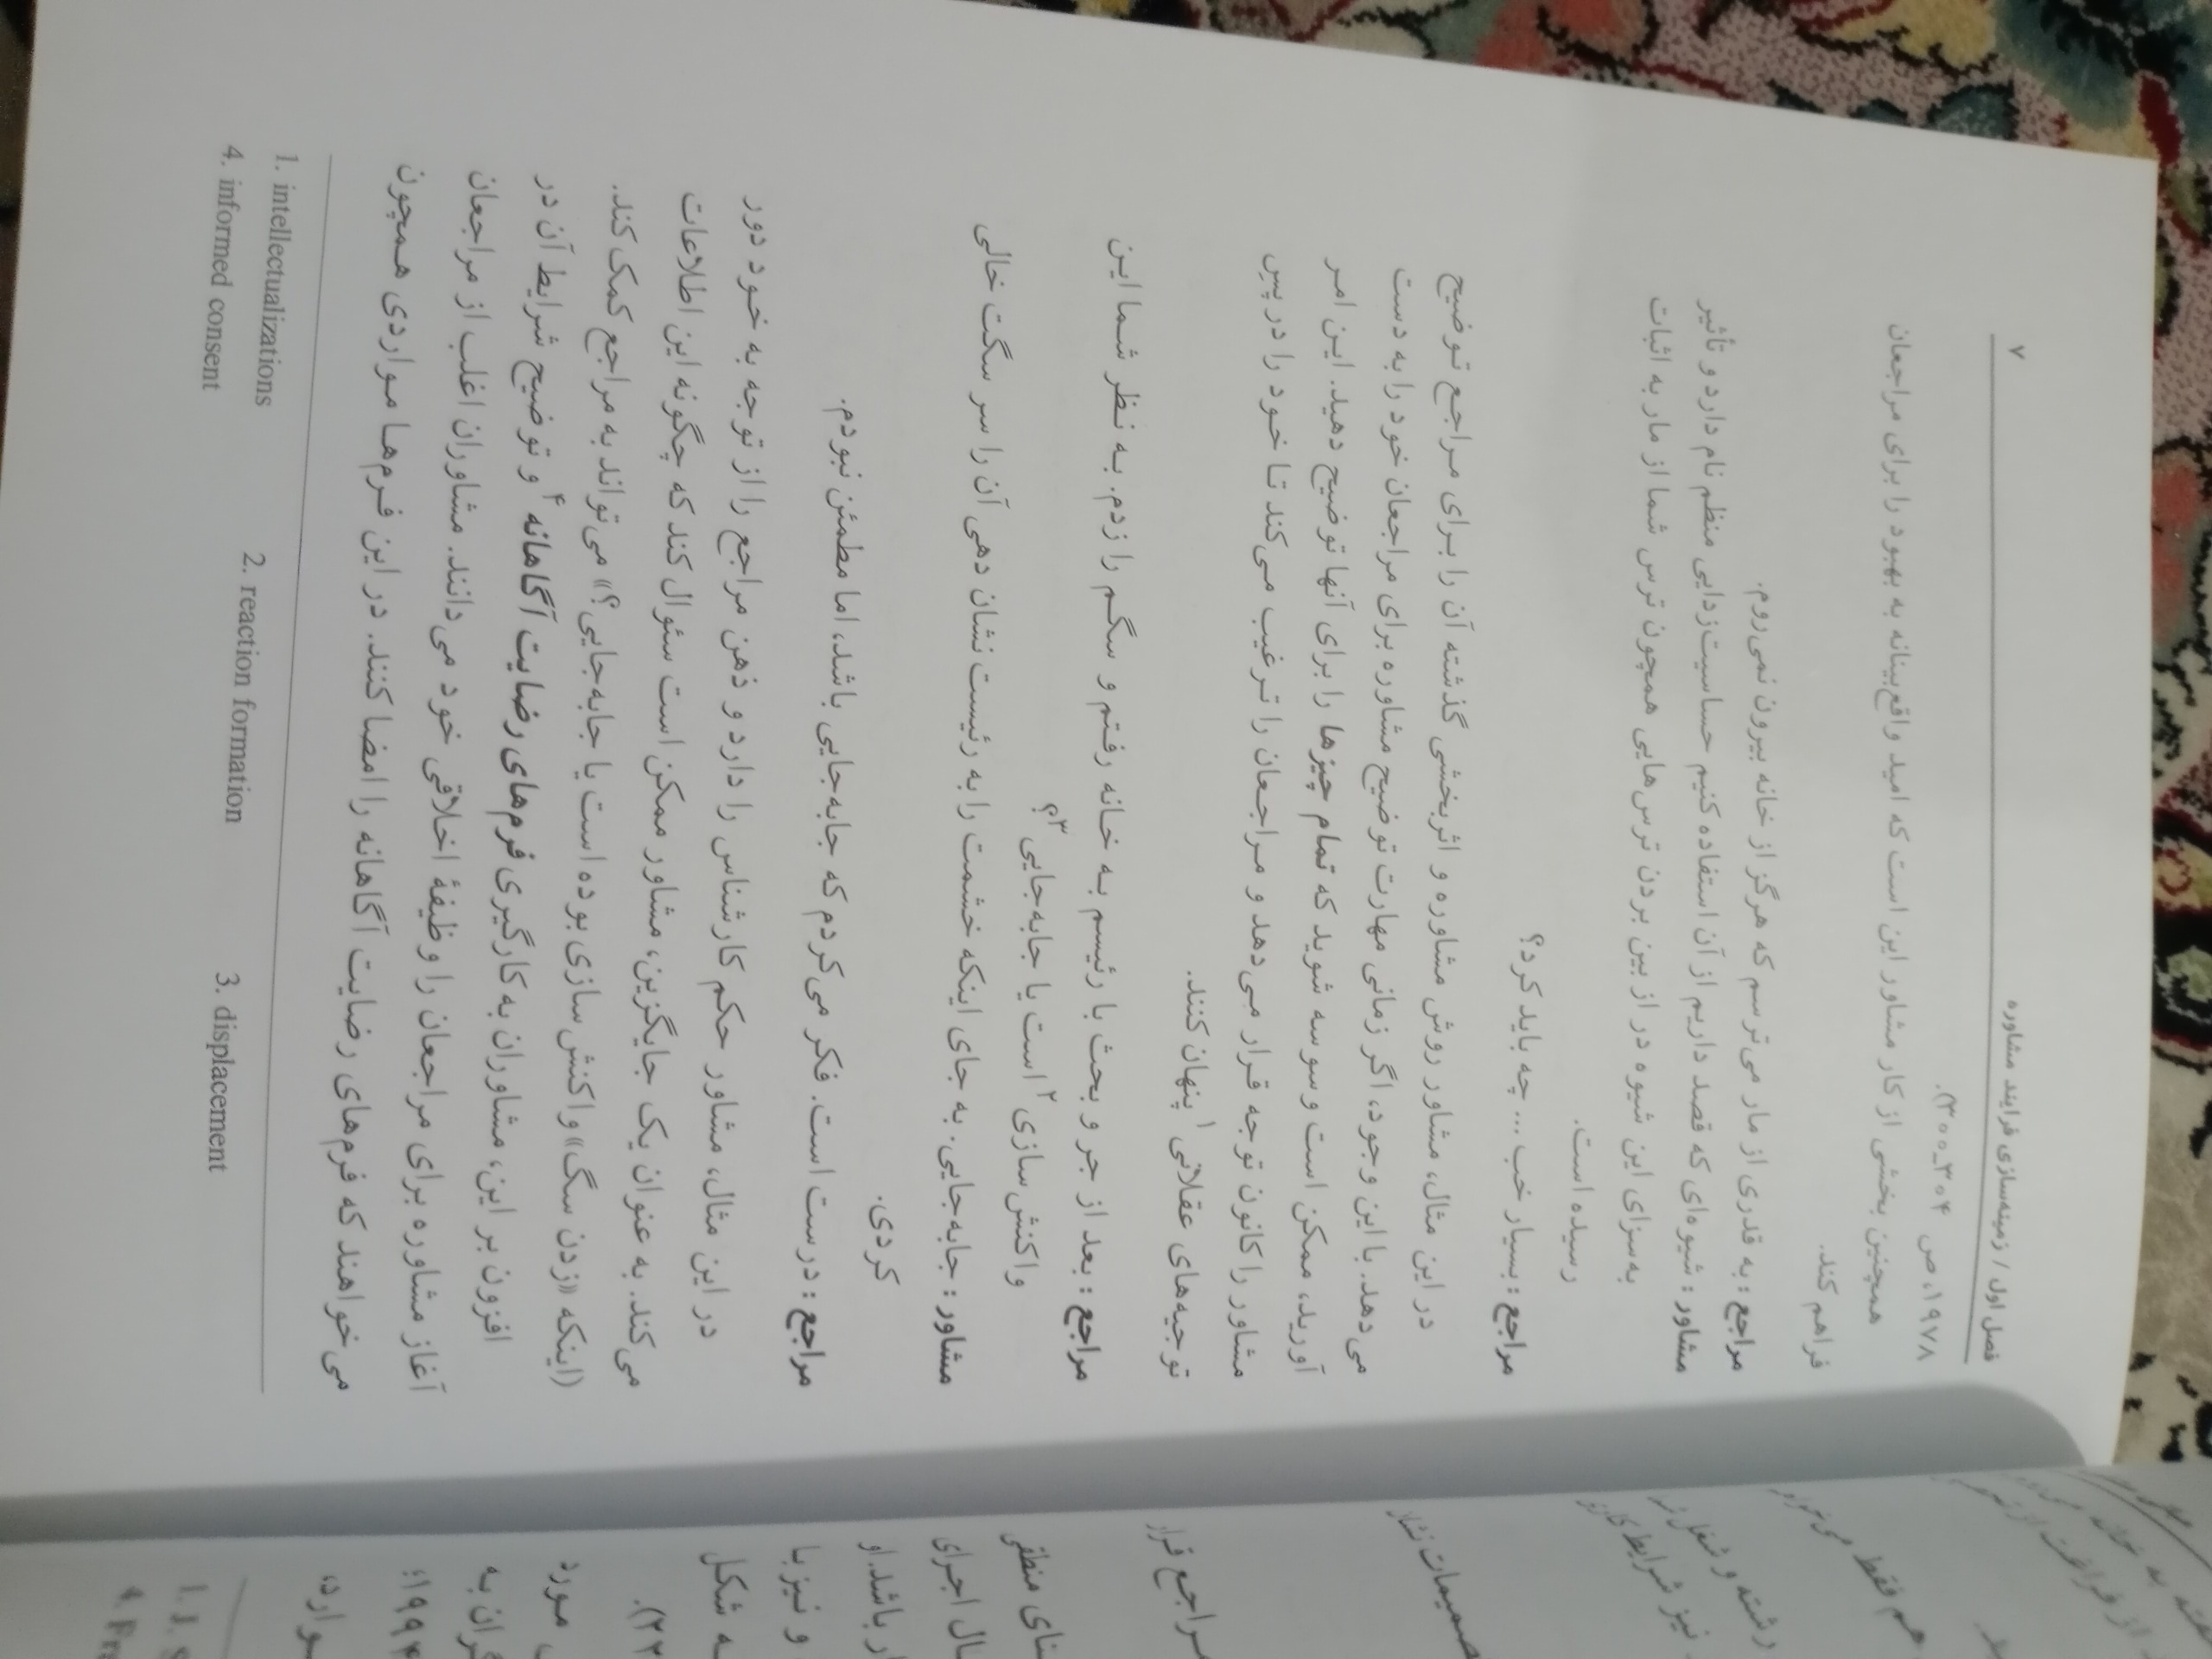 فصل اول / زمینه‌سازی فرایند مشاوره ۷
۱۹۷۸، ص ۳۰۴ـ۳۰۰).
همچنین بخشی از کار مشاور این است که امید واقع‌بینانه به بهبود را برای مراجعان
فراهم کند.
مراجع : به قدری از مار می‌ترسم که هرگز از خانه بیرون نمی‌روم.
مشاور : شیوه‌ای که قصد داریم از آن استفاده کنیم حساسیت‌زدایی منظم نام دارد و تأثیر
به‌سزای این شیوه در از بین بردن ترس‌هایی همچون ترس شما از مار به اثبات
رسیده است.
مراجع : بسیار خب ... چه باید کرد؟
در این مثال، مشاور روش مشاوره و اثربخشی گذشته آن را برای مراجع توضیح
می‌دهد. با این وجود، اگر زمانی مهارت توضیح مشاوره برای مراجعان خود را به دست
آورید، ممکن است وسوسه شوید که تمام چیزها را برای آنها توضیح دهید. این امر
مشاور را کانون توجه قرار می‌دهد و مراجعان را ترغیب می‌کند تا خود را در پس
توجیه‌های عقلانی ۱ پنهان کنند.
مراجع : بعد از جر و بحث با رئیسم به خانه رفتم و سگم را زدم. به نظر شما این
واکنش‌سازی ۲ است یا جابه‌جایی ۳؟
مشاور : جابه‌جایی. به جای اینکه خشمت را به رئیست نشان دهی آن را سر سگت خالی
کردی.
مراجع : درست است. فکر می‌کردم که جابه‌جایی باشد، اما مطمئن نبودم.
در این مثال، مشاور حکم کارشناس را دارد و ذهن مراجع را از توجه به خود دور
می‌کند. به عنوان یک جایگزین، مشاور ممکن است سئوال کند که چگونه این اطلاعات
(اینکه «زدن سگ» واکنش‌سازی بوده است یا جابه‌جایی؟» می‌تواند به مراجع کمک کند.
افزون بر این، مشاوران به کارگیری فرم‌های رضایت آگاهانه ۴ و توضیح شرایط آن در
آغاز مشاوره برای مراجعان را وظیفهٔ اخلاقی خود می‌دانند. مشاوران اغلب از مراجعان
می‌خواهند که فرم‌های رضایت آگاهانه را امضا کنند. در این فرم‌ها مواردی همچون
1. intellectualizations 2. reaction formation 3. displacement
4. informed consent
هم فقط
رشته و شغل
نیز شرایط
مراجع قرار
منطقی
اجرای
باشد. او
و نیز با
شکل
۲۲).
مورد
به
۱۹۹۴؛